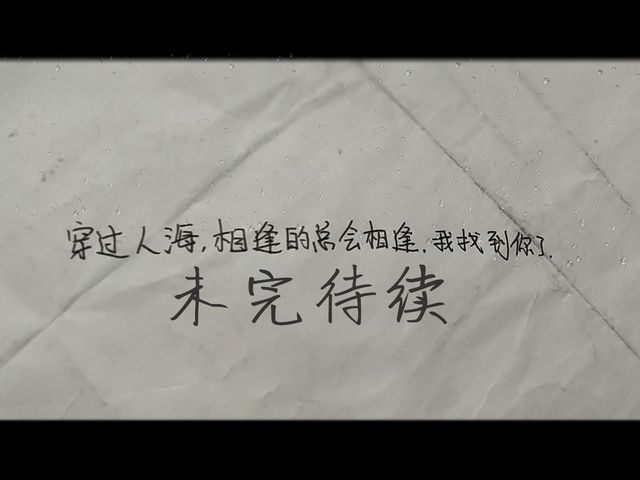 穿过人海,相逢的总会相逢,我找到你了.
未完待续